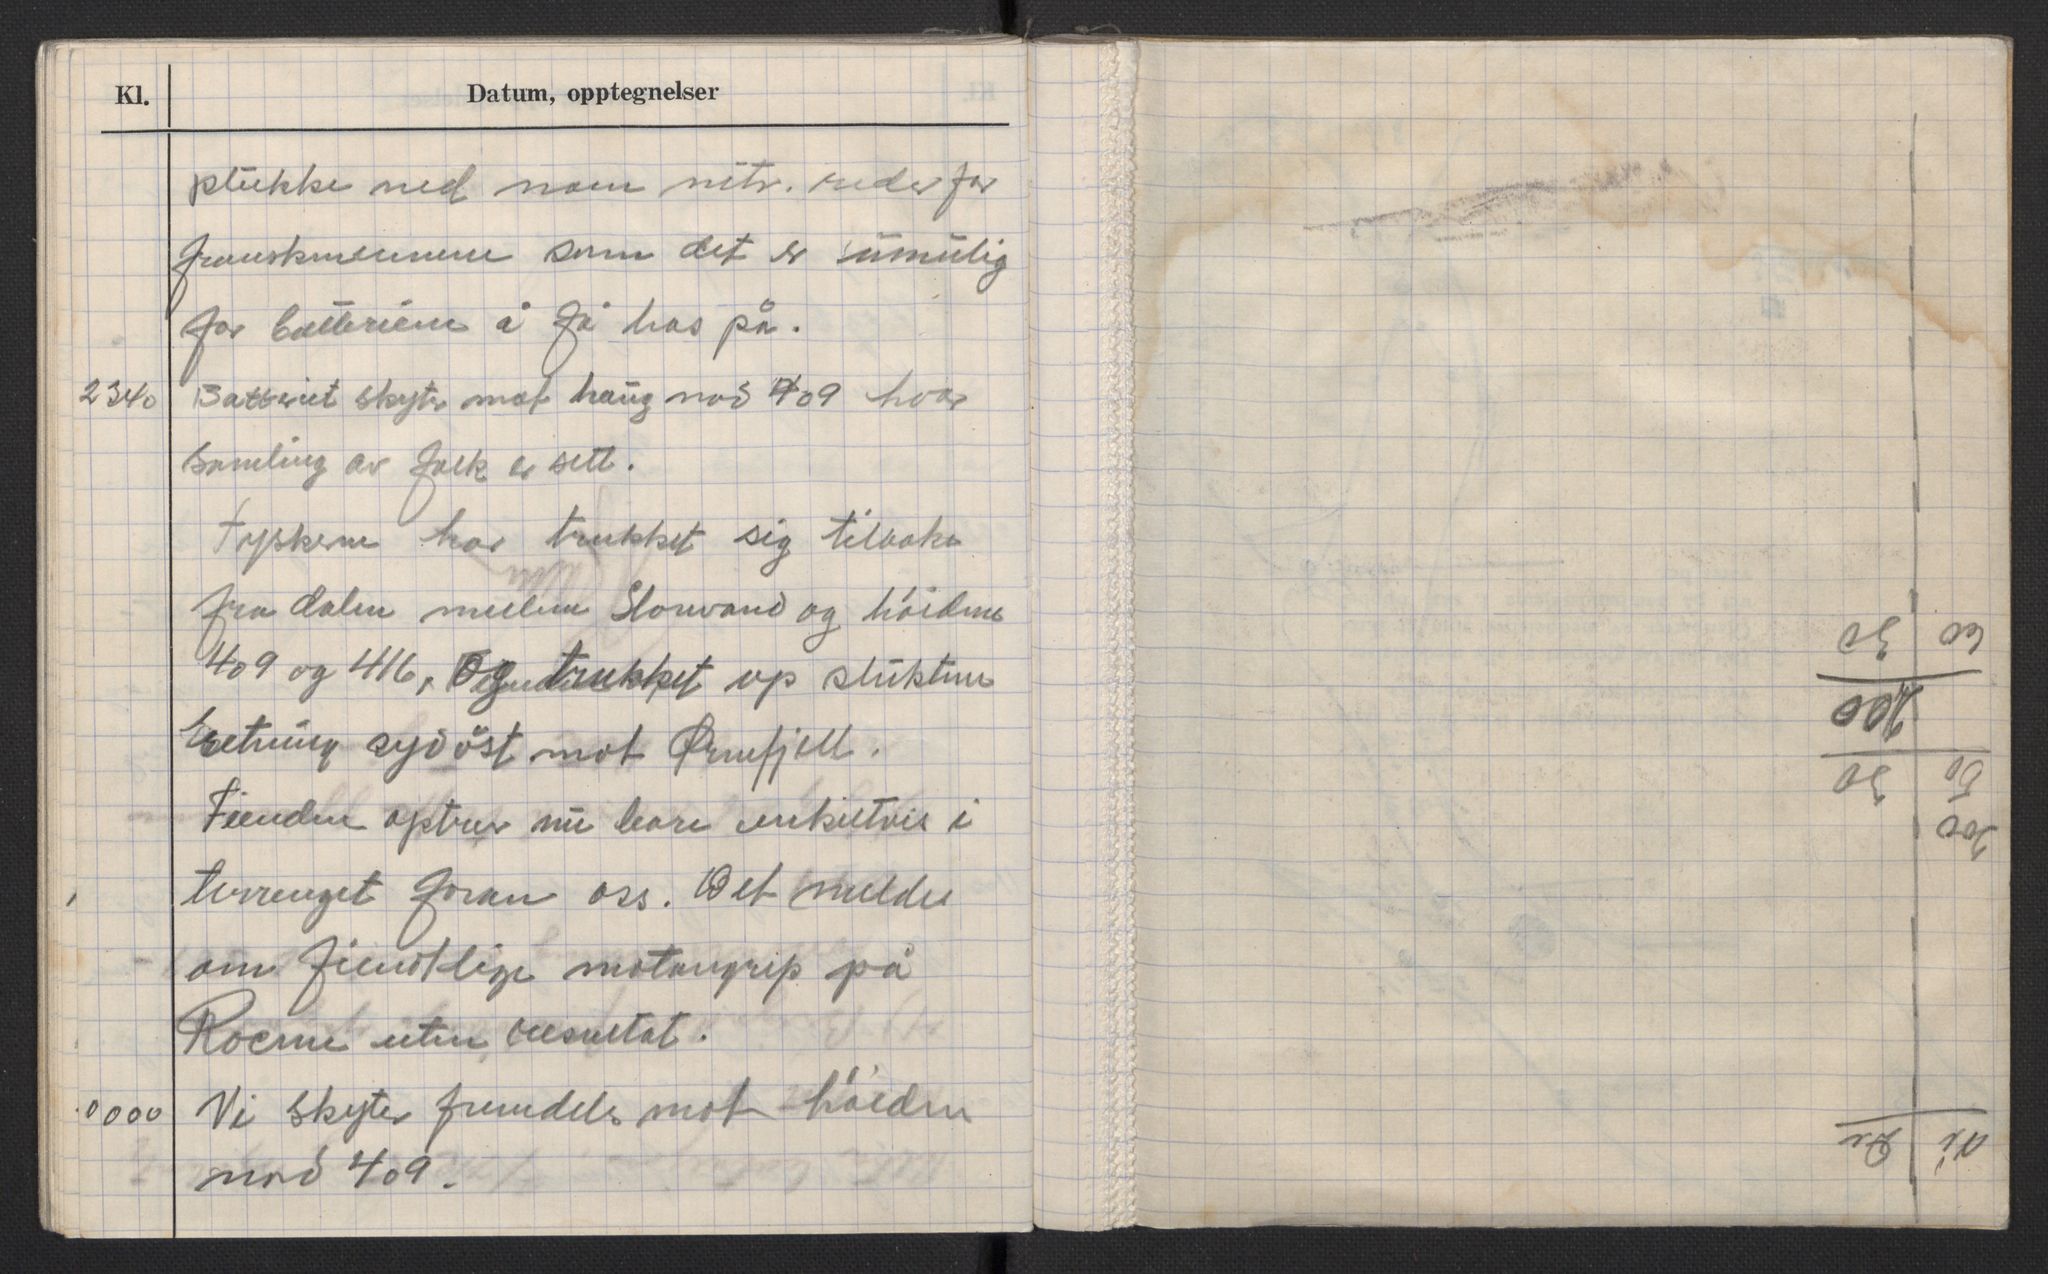 Kl. Datum, opptegnelser
plukke ned noen mtr. reder for
franskmennene som det er umulig
for batteriene å få has på.
2340 Batteriet skyter mot haug nord 409 hvor
samling av folk er sett.
Tyskerne har trukket sig tilbake
fra dalen mellem Storvand og höidene
409 og 416, og trukket op
retning sydöst mot Ørnefjell.
Fienden optrer nu bare enkeltvis i
terrenget foran oss. Det meldes
om fiendtlige motangrep på
Roerne uten resultat.
0000 Vi skyter fremdeles mot höiden
nord 409.
Kr Ør
200
50 30
200
60 30